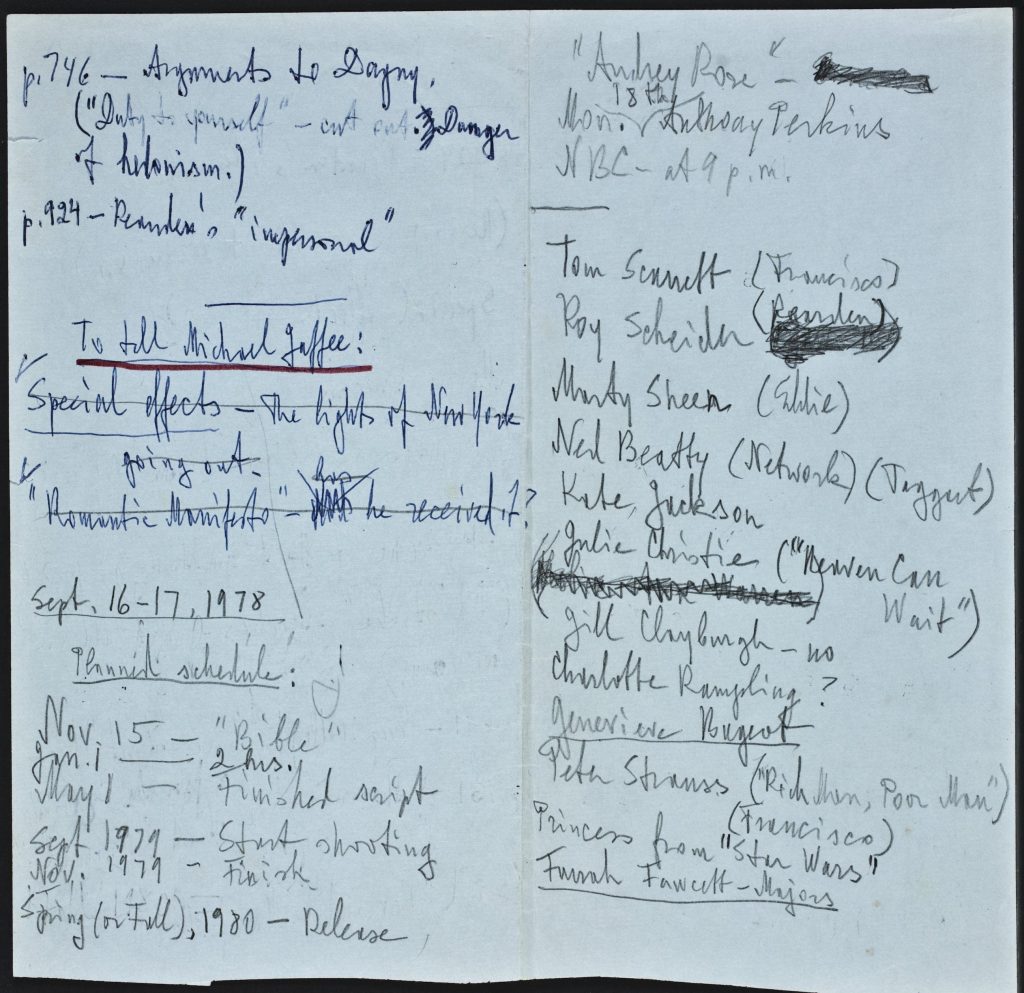 p.746 — Arguments to Dagny.
("Duty to yourself" — cut out. Danger
of hedonism.)
p.924 — Rearden's "impersonal"
To tell Michael Jaffee:
Special effects — The lights of New York
going out.
"Romantic Manifesto" — has he received it?
Sept. 16–17, 1978
Planned schedule:
Nov. 15 — "Bible"
Jan. 1 — 2 hrs.
May 1 — Finished script
Sept. 1979 — Start shooting
Nov. 1979 – Finish
Spring (or Fall), 1980 — Release
"Audrey Rose" –
18th
Mon. Anthony Perkins
NBC – at 9 p.m.
Tom Scannett (Francisco)
Roy Scheider (Rearden)
Marty Sheen (Eddie)
Ned Beatty (Network) (Taggart)
Kate Jackson
Julie Christie ("Heaven Can
Wait")
Jill Clayburgh – no
Charlotte Rampling ?
Genevieve Bugeot
Peter Strauss ("Rich Man, Poor Man")
(Francisco)
Princess from "Star Wars"
Farrah Fawcett-Majors